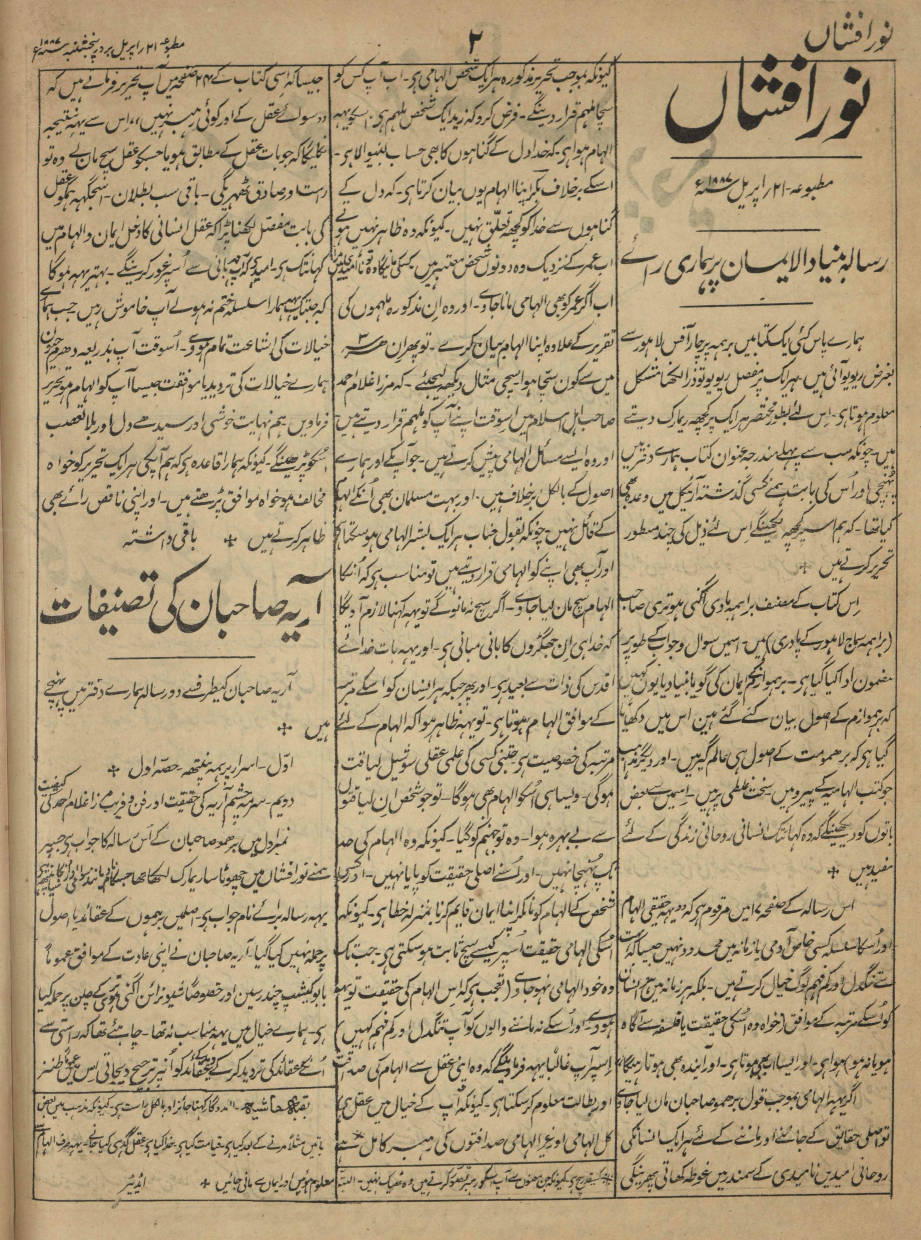 نور افشاں
۲
مطبوعہ ۲۱ اپریل روز پنجشنبہ سنہ ۱۸۸۷ء
نور افشاں
مطبوعہ ۔ ۲۱ اپریل سنہ ۱۸۸۷ء
رسالہ بنیاد الایمان پر ہماری رائے
ہمارے پاس کئی ایک کتابیں برہمہ پرچار آفس لاہور سے
بغرض ریویو آئی ہیں۔ ہر ایک پر مفصل ریویو تو ذرا لکھنا مشکل
معلوم ہوتا ہی۔ اس لئے بطور مختصر ہر ایک پر کچھہ ریمارک دیتے
ہیں چونکہ سب سے پہلے مندرجہ عنوان کتاب ہمارے دفتر میں
پہنچی اور اُس کی بابت ہمنے کسی گذشتہ آرٹیکل میں وعدہ بھی
کیا تھا۔ کہ ہم اسپر کچھہ لکھینگے اس لئے ذیل کی چند سطور
تحریر کرتے ہیں ✣
اِس کتاب کے مصنف براہمہ ہادی اگنی ہوتری صاحب
(براہمہ سماج لاہور کے پادری) ہیں۔ اسمیں سوال و جواب کے طور پر
مضمون ادا کیا گیا ہی۔ برہمو ازم کے ایمان کی گویا بنیاد یا یوں کہیں
کہ برہموازم کے اصول بیان کئے گئے ہیں اس میں دکھایا
گیا ہی کہ برہم مت کے اصول ہی عالمگیر ہیں۔ اور دیگر مذاہب
جو کتب الہامیہ کے پیرو ہیں سخت غلطی پر ہیں۔ اسمیں سے بعض
باتوں کو دیکھینگے کہ وہ کہانتک انسانی روحانی زندگی کے لئے
مفید ہیں ✣
اس رسالہ کے صفحہ ۱۷ میں مرقوم ہی کہ وہ یہہ حقیقی الہام
اور اُسکا سلسلہ کسی خاص آدمی یا زمانہ میں محدود نہیں جیسا کہ بہت
سے تنگدل اور کم فہم لوگ خیال کرتے ہیں۔ بلکہ ہر زمانہ میں ہر انسان
کو اُسکے مرتبہ کے موافق (خواہ وہ اُسکی حقیقت یا فلسفہ سے آگاہ
ہو یا نہ ہو) ہوا ہی۔ اور ایسا ابھی ہوتا ہی۔ اور آیندہ بھی ہوتا رہیگا،،
اگر یہہ الہامی بموجب قول برھمو صاحبان مان لیا جاوے
تو اصلی حقایق کے جاننے اور ماننے کے لئے ہر ایک انسان کی
روحانی اُمیدیں نا اُمیدی کے سمندر میں غوطہ کھاتی پھرینگی
کیونکہ بموجب تحریر مذکورہ ہر ایک شخص الہامی ہی۔ اب آپ کس کو
سچا ملہم قرار دینگے۔ فرض کرو کہ زید ایک شخص ملہم ہی۔ اسکو یہہ
الہام ہوا ہی۔ کہ خدا دل کے گناہوں کا بھی حساب لینیوالا ہی۔
اسکے برخلاف بکر اپنا الہام یوں بیان کرتا ہی۔ کہ دل کے
گناہوں سے خدا کو کچھہ تعلق نہیں۔ کیونکہ وہ ظاہر نہیں ہوتے
اب عمر کے نزدیک وہ دونوں شخص معتبر ہیں۔
اب اگر عمر کو بھی الہامی مانا جاوے۔ اور وہ اِن مذکورہ ملہموں کی
تقریر کے علاوہ اپنا الہام بیان کرے۔ تو پھر ان ہر سہ
میں سے کون سچا ہوا ایسی مثال دیکھہ لیجئے۔ کہ مرزا غلام احمد
صاحب اہل اسلام میں اسوقت اپنے آپ کو ملہم قرار دیتے ہیں
اور وہ ایسے مسائل الہامی پیش کرتے ہیں۔ جو آپکے اور ہمارے
اصول کے بالکل برخلاف ہیں۔ اور بہت مسلمان بھی اُنکے الہام
کے قائل نہیں۔ چونکہ بقول جناب ہر ایک بشر الہامی ہو سکتا ہی
اور آپ بھی اپنے کو الہامی قرار دیتے ہیں تو مناسب ہی کہ اُنکا
الہام سچ مان لیا جاوے۔ اگر سچ نہ مانو گے تو یہہ کہنا لازم آویگا
کہ خدا ہی اِن جھگڑوں کا بانی مبانی ہی۔ اور یہہ بات خدائے
اقدس کی ذات سے بعید ہی۔ اور پھر جبکہ ہر انسان کو اسکے مرتبہ
کے موافق الہام ہوتا ہی۔ تو یہہ ظاہر ہوا کہ الہام کے لئے
مرتبہ کی خصوصیت ہی جتنی کسی کی علمی عقلی سوشل لیاقت
ہوگی۔ ویسا ہی اُسکو الہام بھی ہوگا۔ تو جو شخص اِن لیاقتوں
سے بے بہرہ ہوا۔ وہ تو جہنم کو گیا۔ کیونکہ وہ الہام کی حد
تک پہنچا نہیں۔ اور اُسنے اصلی حقیقت کو پایا نہیں۔ اور کسی
شخص کے الہام کو مان کر اپنا ایمان قایم کرنا بمنزلہ خطا ہی۔ کیونکہ
اُسکی الہامی حقیقت اُسپر کیسے سچ ثابت ہو سکتی ہی جب تک
وہ خود الہامی نہ ہو جاوے (تعجب ہی کہ اُس الہام کی حقیقت تو یہہ
ہووے۔ اور اُسکے نہ ماننے والوں کو آپ تنگدل اور کم فہم کہیں)
اِسپر آپ غالباً یہہ فرماوینگے کہ وہ اپنی عقل سے الہام کی صداقت
اور بطالت معلوم کر سکتا ہی۔ کیونکہ آپ کے خیال میں عقل ہی
کل الہامی اور غیر الہامی صداقتوں کی رہبر کامل
جیسا کہ اسی کتاب کے ۲۴ صفحہ میں آپ تحریر فرماتے ہیں کہ
،،سوائے عقل کے اور کوئی رہبر نہیں،،، اس سے یہہ نتیجہ
نکلیگا کہ جو بات عقل کے مطابق ہو یا جسکو عقل سچ مان لے وہ تو
راست اور صادق ٹھہریگی۔ باقی سب بطلان۔ اسجگہہ ہمکو عقل
کی بابت مفصل لکھنا پڑا کہ عقل انسانی کا دخل ایمان و الہام میں
کہانتک ہی۔ امید ہی کہ آپ مہربانی سے اُسپر غور کرینگے۔ بہتر یہہ ہوگا
کہ جبتک یہہ ہمارا سلسلہ ختم نہ ہولے آپ خاموش رہیں جب ہمارے
خیالات کی اشاعت تمام ہووے۔ اُسوقت آپ بذریعہ دھرم جیون
ہمارے خیالات کی تردید یا موافقت جیسا آپ کو الہام ہو تحریر
فرماویں ہم نہایت خوشی اور سیدھے دل اور بلا تعصب
اُسکو پڑھینگے۔ کیونکہ ہمارا قاعدہ ہی کہ ہم آپکی ہر ایک تحریر کو خواہ
مخالف ہو خواہ موافق پڑھتے ہیں۔ اور اپنی ناقص رائے بھی
ظاہر کرتے ہیں ✣ باقی داشتہ
آریہ صاحبان کی تصنیفات
آریہ صاحبان کیطرف سے دو رسالہ ہمارے دفتر میں پہنچے
ہیں ✣
اوّل۔ اسرار برہمہ پنتھہ۔ حصّہ اول ✣
دویم۔ سرمہ چشم آریہ کی حقیقت اور فن و فریب مرزا غلام احمد کی کیفیت
نمبر اول میں برہمو صاحبان کے اُس رسالہ کا جواب ہی جسپر
ہمنے نور افشاں میں چھوٹا سا ریمارک لکھا تھا
یہہ رسالہ برائے نام جواب ہی۔ اصلمیں برہموں کے عقائد یا اصول
پر حملہ نہیں کیا گیا۔ آریہ صاحبان نے اپنی عادت کے موافق عموماً
بابو کیشب چندر سین اور خصوصاً شیو نرائن اگنی ہوتری کے چلن پر حملہ کیا
ہی۔ ہمارے خیال میں یہہ مناسب نہ تھا۔ چاہئے تھا کہ راستی سے
اُنکے عقائد کی تردید کر کے وید کے عقائد کو اُنپر ترجیح دیجاتی اِس میں
بقیہ حاشیہ۔
معلوم ہوئیں اور ایمان سے مانی جائیں ✣ ایڈیٹر